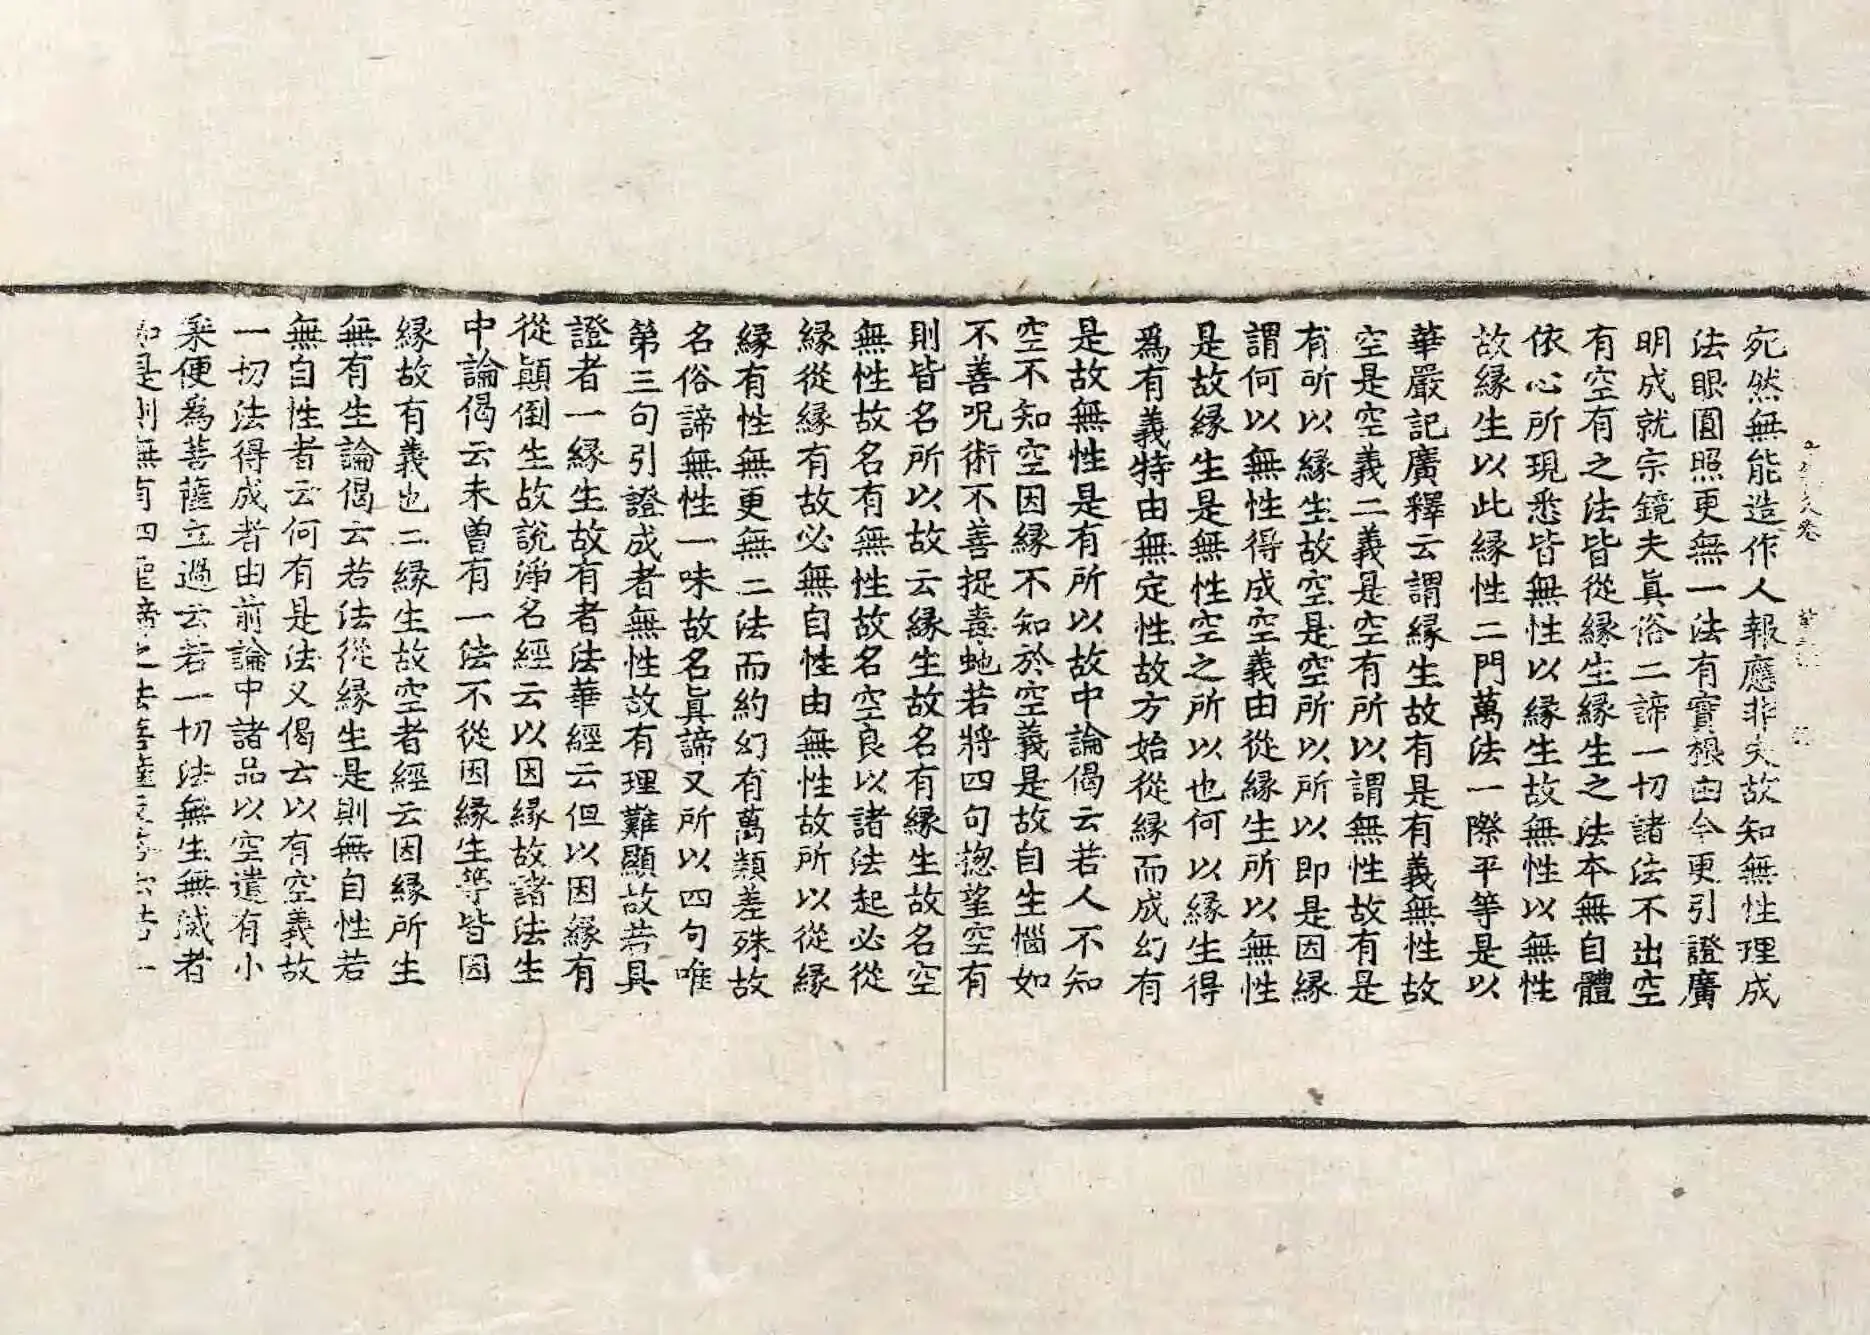 宛然無能造作人報應非失故知無性理成
法眼圓照更無一法有實根由今更引證廣
明成就宗鏡夫眞俗二諦一切諸法不出空
有空有之法皆從緣生緣生之法本無自體
依心所現悉皆無性以緣生故無性以無性
故緣生以此緣性二門萬法一際平等是以
華嚴記廣釋云謂緣生故有是有義無性故
空是空義二義是空有所以謂無性故有是
有所以緣生故空是空所以所以即是因緣
謂何以無性得成空義由從緣生所以無性
是故緣生是無性空之所以也何以緣生得
爲有義特由無定性故方始從緣而成幻有
是故無性是有所以故中論偈云若人不知
空不知空因緣不知於空義是故自生惱如
不善呪術不善捉毒虵若將四句揔望空有
則皆名所以故云緣生故名有緣生故名空
無性故名有無性故名空良以諸法起必從
緣從緣有故必無自性由無性故所以從緣
緣有性無更無二法而約幻有萬類差殊故
名俗諦無性一味故名眞諦又所以四句唯
第三句引證成者無性故有理難顯故若具
證者一緣生故有者法華經云但以因緣有
從顚倒生故說淨名經云以因緣故諸法生
中論偈云未曾有一法不從因緣生等皆因
緣故有義也二緣生故空者經云因緣所生
無有生論偈云若法從緣生是則無自性若
無自性者云何有是法又偈云以有空義故
一切法得成者由前論中諸品以空遣有小
乘便爲菩薩立過云若一切法無生無滅者
如是則無有四聖諦之法菩薩
卷